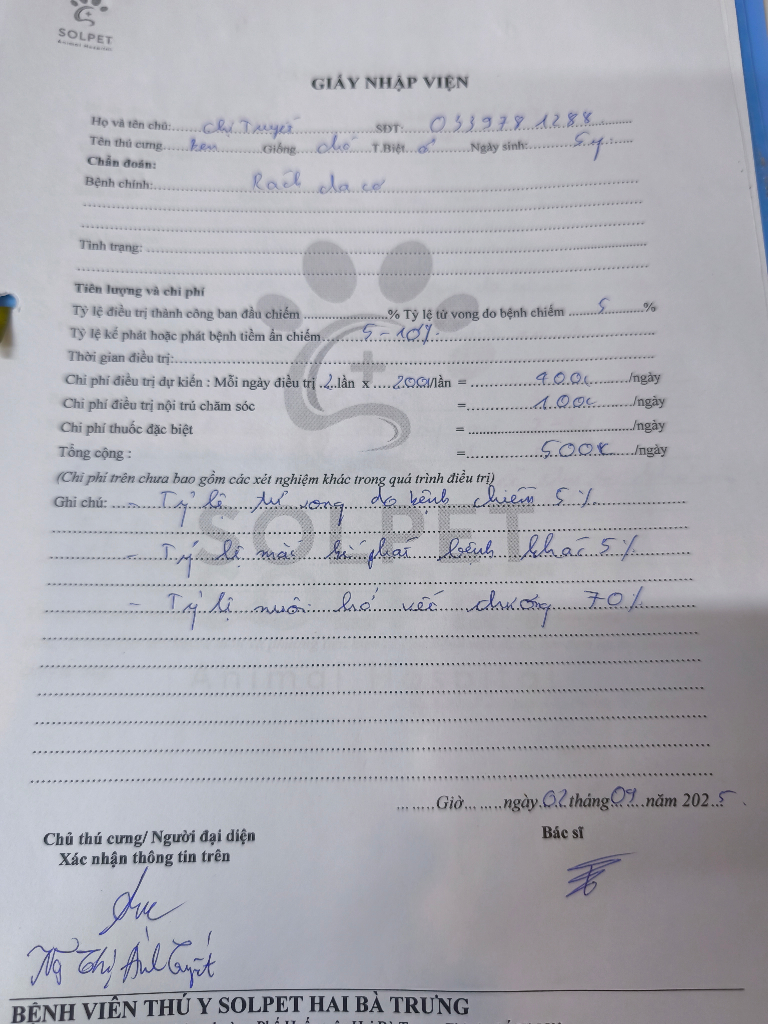 SOLPET
Animal Hospital
GIẤY NHẬP VIỆN
Họ và tên chủ: Chị Tuyết SĐT: 0339781288
Tên thú cưng ken Giống chó T.Biệt ♂ Ngày sinh: 5 y
Chẩn đoán:
Bệnh chính: Rách da cơ
Tình trạng:
Tiên lượng và chi phí
Tỷ lệ điều trị thành công ban đầu chiếm % Tỷ lệ tử vong do bệnh chiếm 5 %
Tỷ lệ kế phát hoặc phát bệnh tiềm ẩn chiếm 5-10%
Thời gian điều trị:
Chi phí điều trị dự kiến : Mỗi ngày điều trị 2 lần x 200k/lần = 400k /ngày
Chi phí điều trị nội trú chăm sóc = 100k /ngày
Chi phí thuốc đặc biệt = /ngày
Tổng cộng : = 500k /ngày
(Chi phí trên chưa bao gồm các xét nghiệm khác trong quá trình điều trị)
Ghi chú: - Tỷ lệ tử vong do bệnh chiếm 5%
- Tỷ lệ mắc kế phát bệnh khác 5%
- Tỷ lệ nuôi hở vết thương 70%
SOLPET
Animal Hospital
Giờ ngày 02 tháng 09 năm 2025.
Chủ thú cưng/ Người đại diện
Xác nhận thông tin trên
Bác sĩ
Ng Thị Ánh Tuyết
BỆNH VIỆN THÚ Y SOLPET HAI BÀ TRƯNG